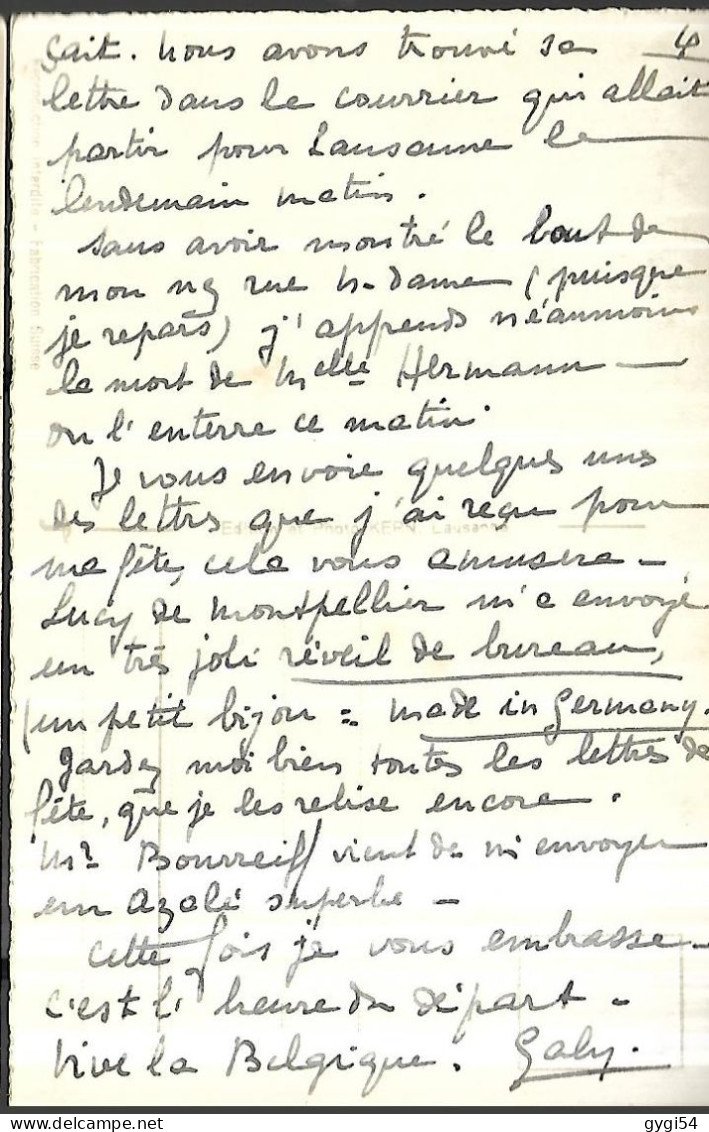 çait. Nous avons trouvé sa 4
lettre dans le courrier qui allait
partir pour Lausanne le
lendemain matin.
Sans avoir montré le bout de
mon nez rue N-dame (puisque
je repars) j'apprends néanmoins
la mort de Melle Hermann —
on l'enterre ce matin.
Je vous envoie quelques unes
des lettres que j'ai reçu pour
Edition et Photo KERN, Lausanne
ma fête, cela vous amusera —
Lucy de Montpellier m'a envoyé
un très joli réveil de bureau,
(un petit bijou = made in Germany.
Gardez moi bien toutes les lettres de
fête, que je les relise encore.
Mr Bourreiff vient de m'envoyer
un azalé superbe —
Cette fois je vous embrasse —
c'est l'heure du départ —
Vive la Belgique. Gaby.
interdite - Fabrication Suisse
gygi54